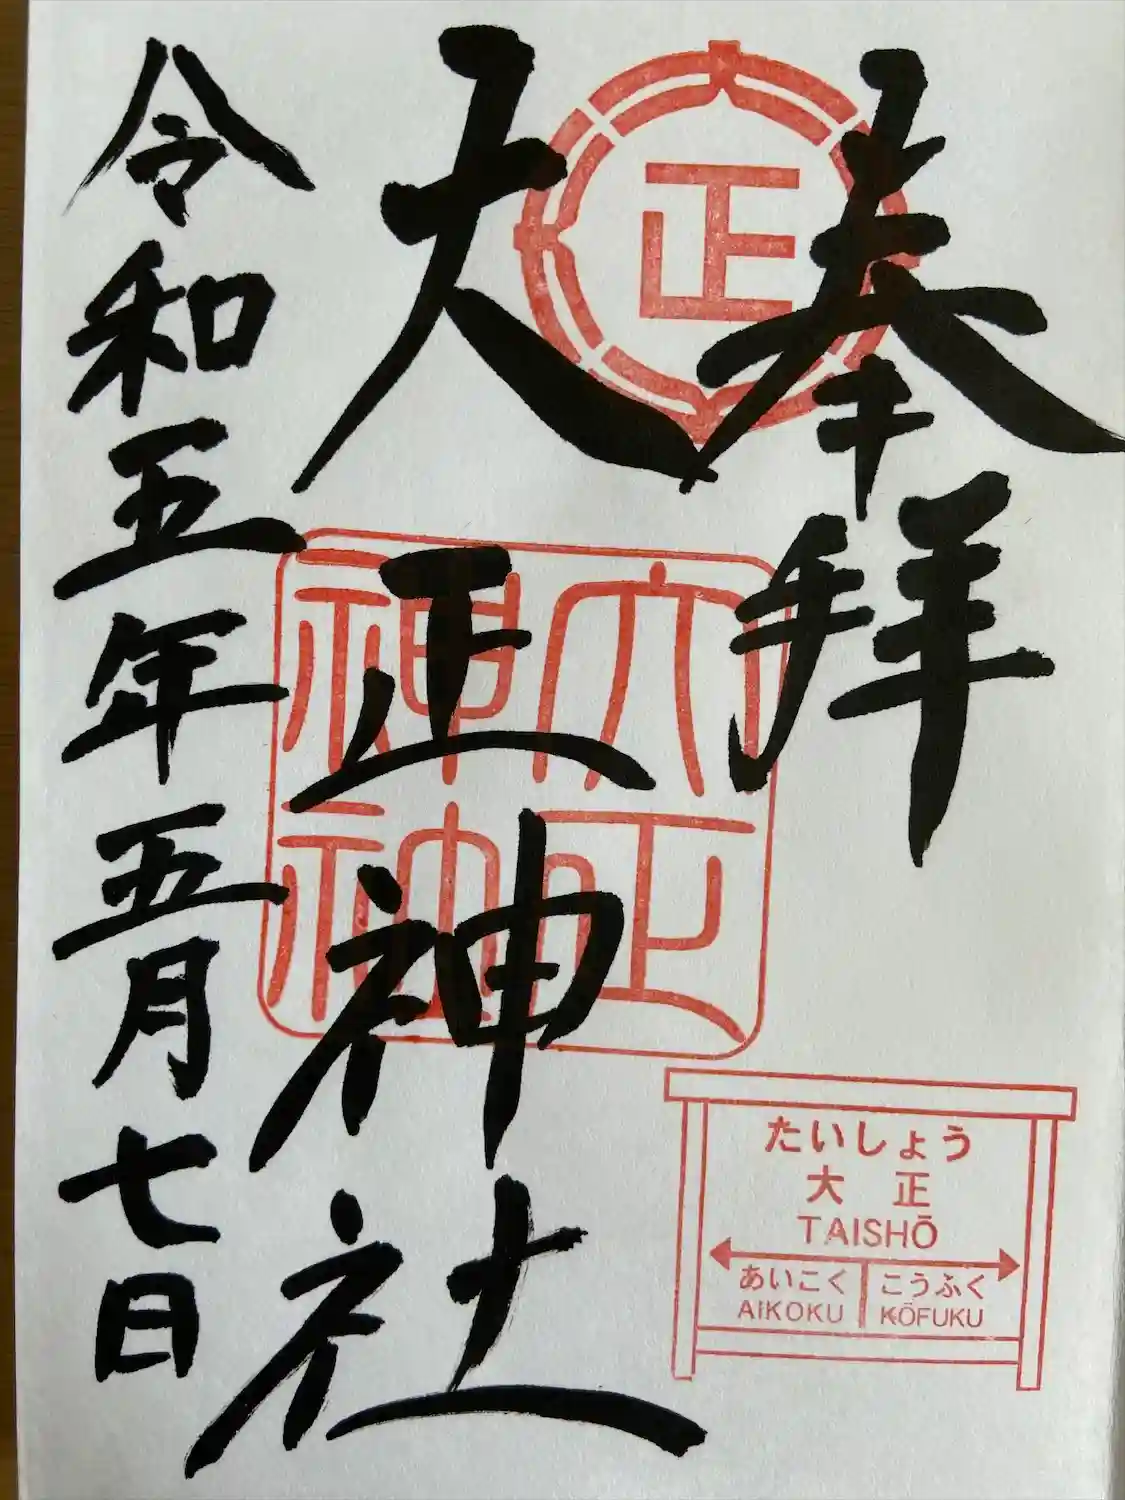 奉拝
正
大正神社
大正
神社
令和五年五月七日
たいしょう
大正
TAISHŌ
あいこく こうふく
AIKOKU KŌFUKU